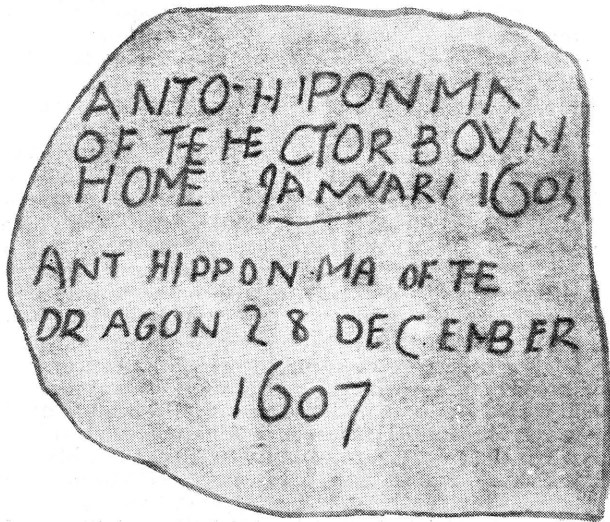 ANTO HIPON MA
OF TE HE CTOR BOVN
HOME JANVARI 1605
ANT HIPPON MA OF TE
DRAGON 28 DECEMBER
1607